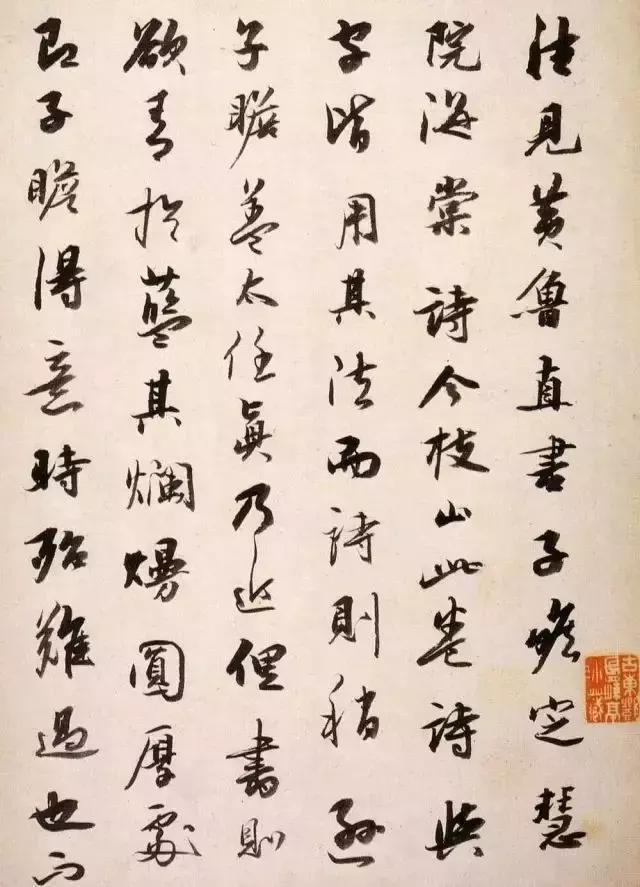 往見黃魯直書子瞻定慧
院海棠詩今枝山此卷詩與
字皆用其法而詩則稍遜
子瞻蓋太任眞乃近俚書則
欲青於藍其爛熳圓厚處
即子瞻得意時殆難過也而